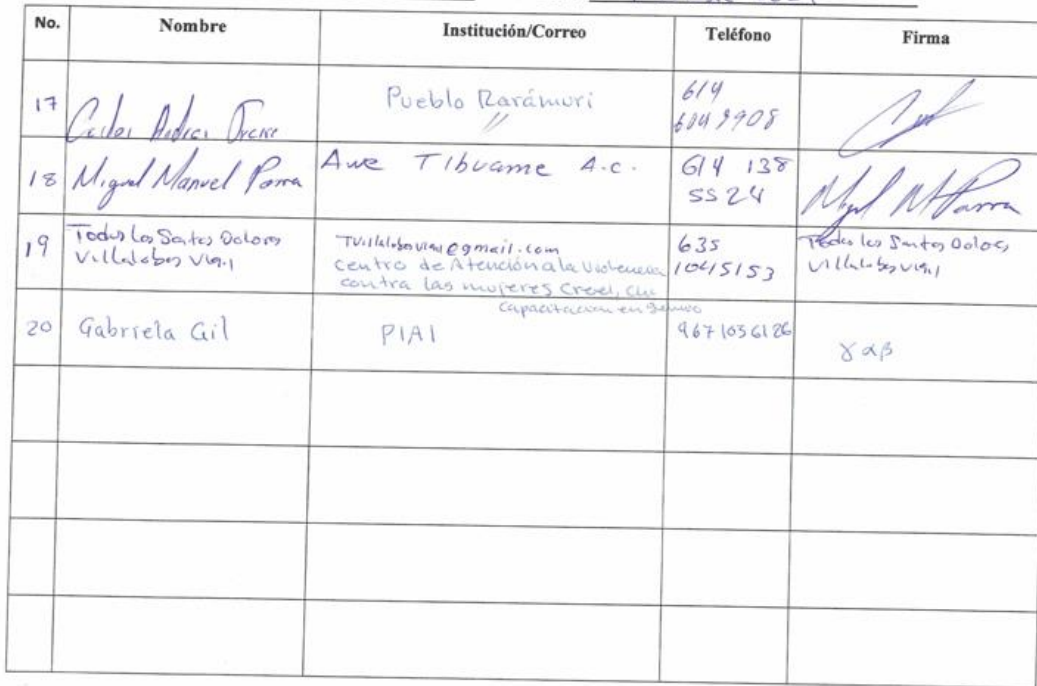 No. Nombre Institución/Correo Teléfono Firma
17 Carlos Pueblo Rarámuri 614
"
18 Miguel Manuel Parra Awe Tibuame A.C. 614 138
5524
19 Todos los Santos Dolores
Villalobos Vigil
Tvillalobosvigil@gmail.com
Centro de Atención a la Violencia
contra las mujeres Creel, Chi
Capacitacion en genero
635
1045153
Todos los Santos Dolores
Villalobos Vigil
20 Gabriela Gil PIAI 9671036126 γαβ